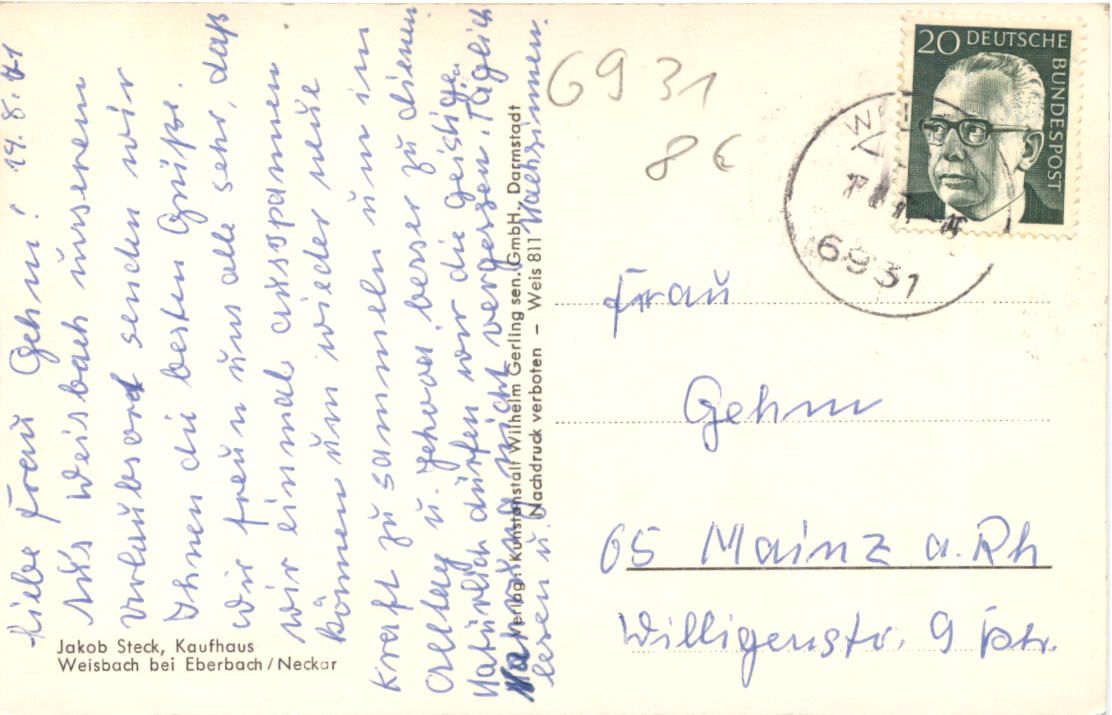 19.8.71
Liebe Frau Gehm!
Aus Weisbach unserem
Urlaubsort senden wir
Ihnen die besten Grüße.
Wir freun uns alle sehr, daß
wir einmal ausspannen
können um wieder neue
Kraft zu sammeln um im
Alltag u. Jehova besser zu dienen
Natürlich dürfen wir die geistige
Nahrung nicht vergessen. Täglich
lesen u. nachsinnen.
Jakob Steck, Kaufhaus
Weisbach bei Eberbach/Neckar
Verlag: Kunstanstalt Wilhelm Gerling sen. GmbH., Darmstadt
Nachdruck verboten – Weis 811
6931
8 €
20 DEUTSCHE
BUNDESPOST
6931
Frau
Gehm
65 Mainz a. Rh
Willigenstr. 9 ptr.